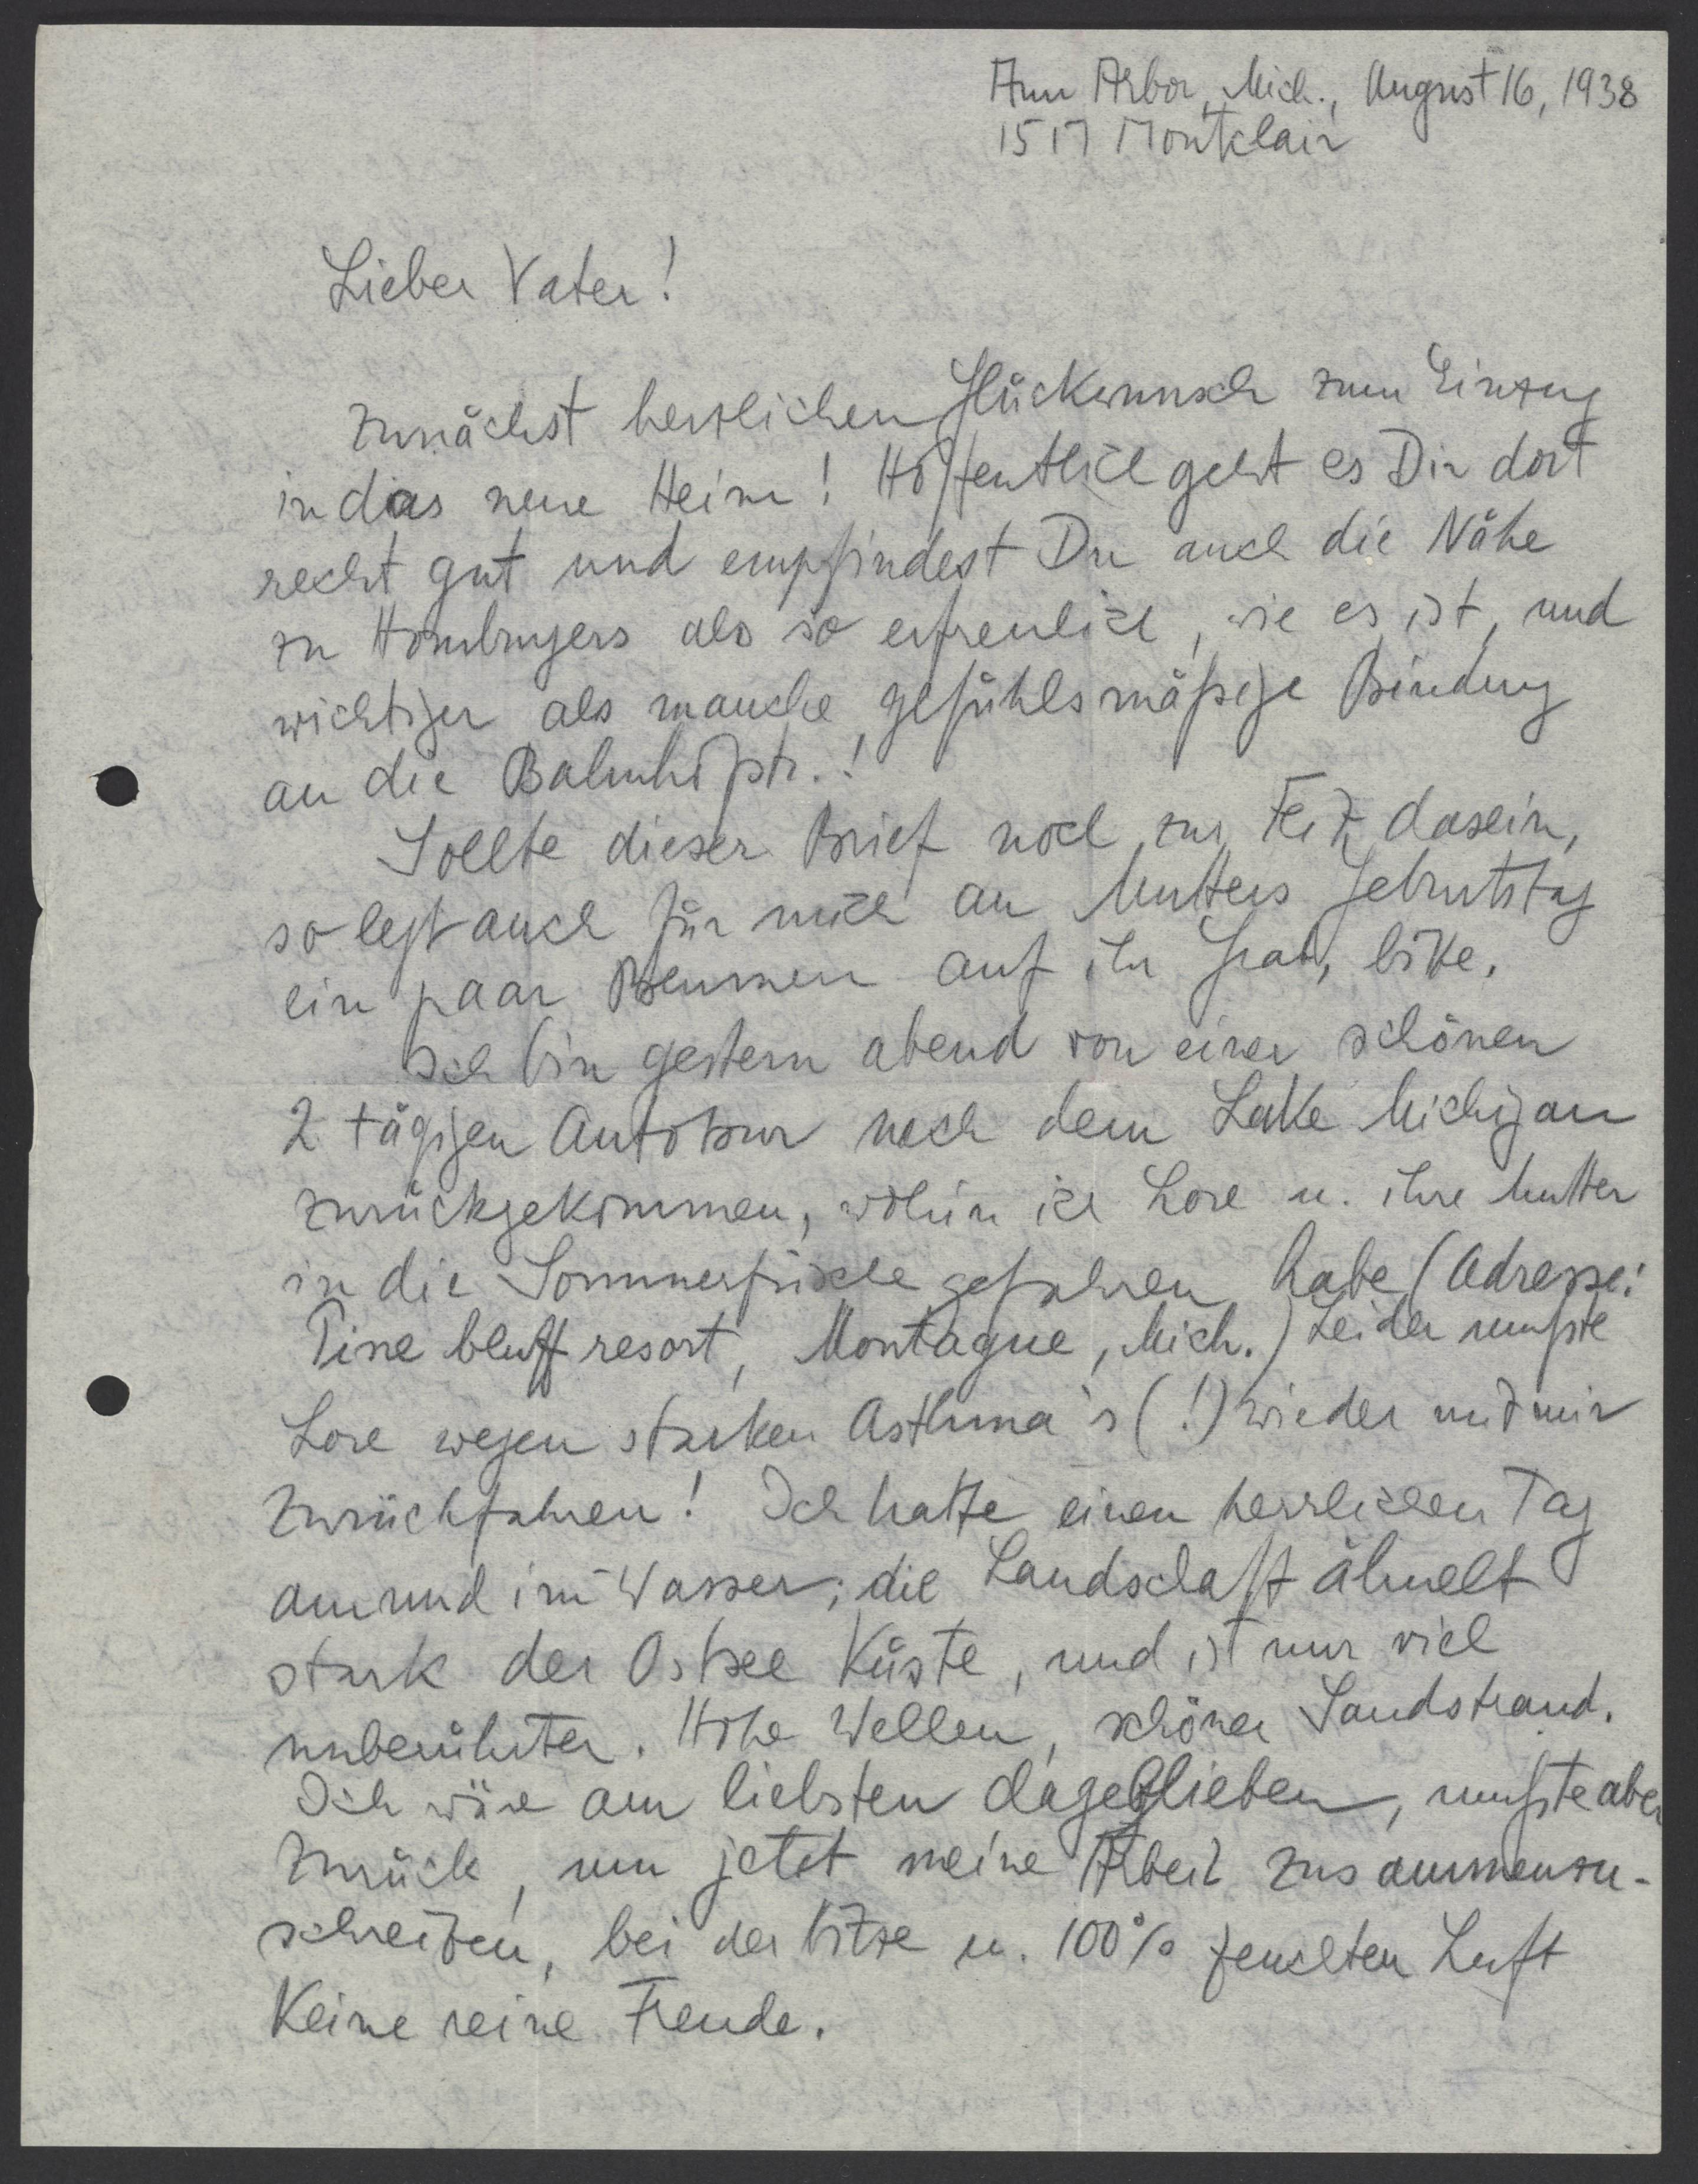 Ann Arbor, Mich., August 16, 1938
1517 Montclair
Lieber Vater!
Zunächst herzlichen Glückwunsch zum Einzug
in das neue Heim! Hoffentlich geht es Dir dort
recht gut und empfindest Du auch die Nähe
zu Homburgers als so erfreulich, wie es ist, und
wichtiger als manche gefühlsmäßige Bindung
an die Bahnhofstr.!
Sollte dieser Brief noch zur Zeit dasein,
so legt auch für mich an Mutters Geburtstag
ein paar Blumen auf ihr Grab, bitte.
Ich bin gestern abend von einer schönen
2 tägigen Autotour nach dem Lake Michigan
zurückgekommen, wohin ich Lore u. ihre Mutter
in die Sommerfrische gefahren habe (Adresse:
Pine bluff resort, Montague, Mich.) Leider mußte
Lore wegen starken Asthma's (!) wieder mit mir
zurückfahren! Ich hatte einen herrlichen Tag
am und im Wasser; die Landschaft ähnelt
stark der Ostsee Küste, und ist nur viel
unberührter. Hohe Wellen, schöner Sandstrand.
Ich wäre am liebsten dageblieben, mußte aber
zurück, um jetzt meine Arbeit zusammenzu-
schreiben, bei der Hitze u. 100% feuchten Luft
Keine reine Freude.